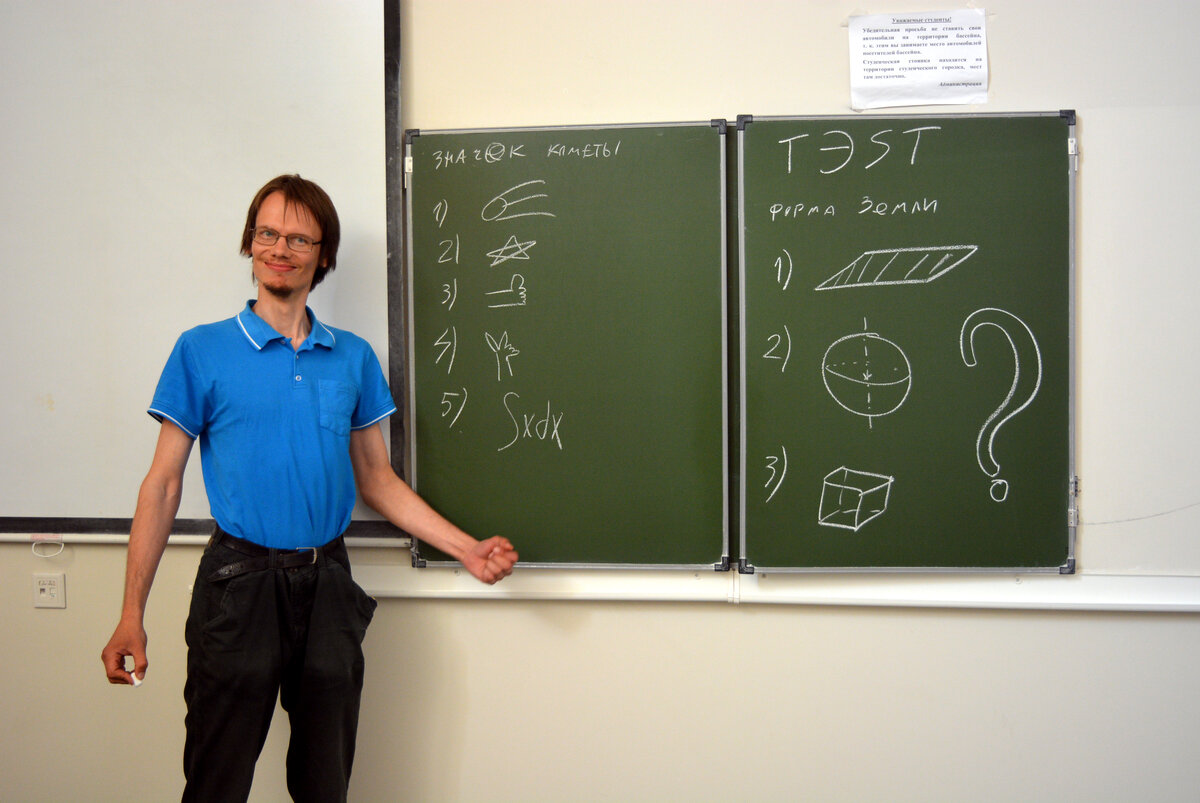 Уважаемые студенты!
Убедительная просьба не ставить свои
автомобили на территории бассейна,
т. к. этим вы занимаете место автомобилей
посетителей бассейна.
Студенческая стоянка находится на
территории студенческого городка, мест
там достаточно.
Администрация
ЗНАЧОК КОМЕТЫ
1)
2)
3)
4)
5) ∫xdx
TЭST
ФОРМА ЗЕМЛИ
1)
2)
3)
?